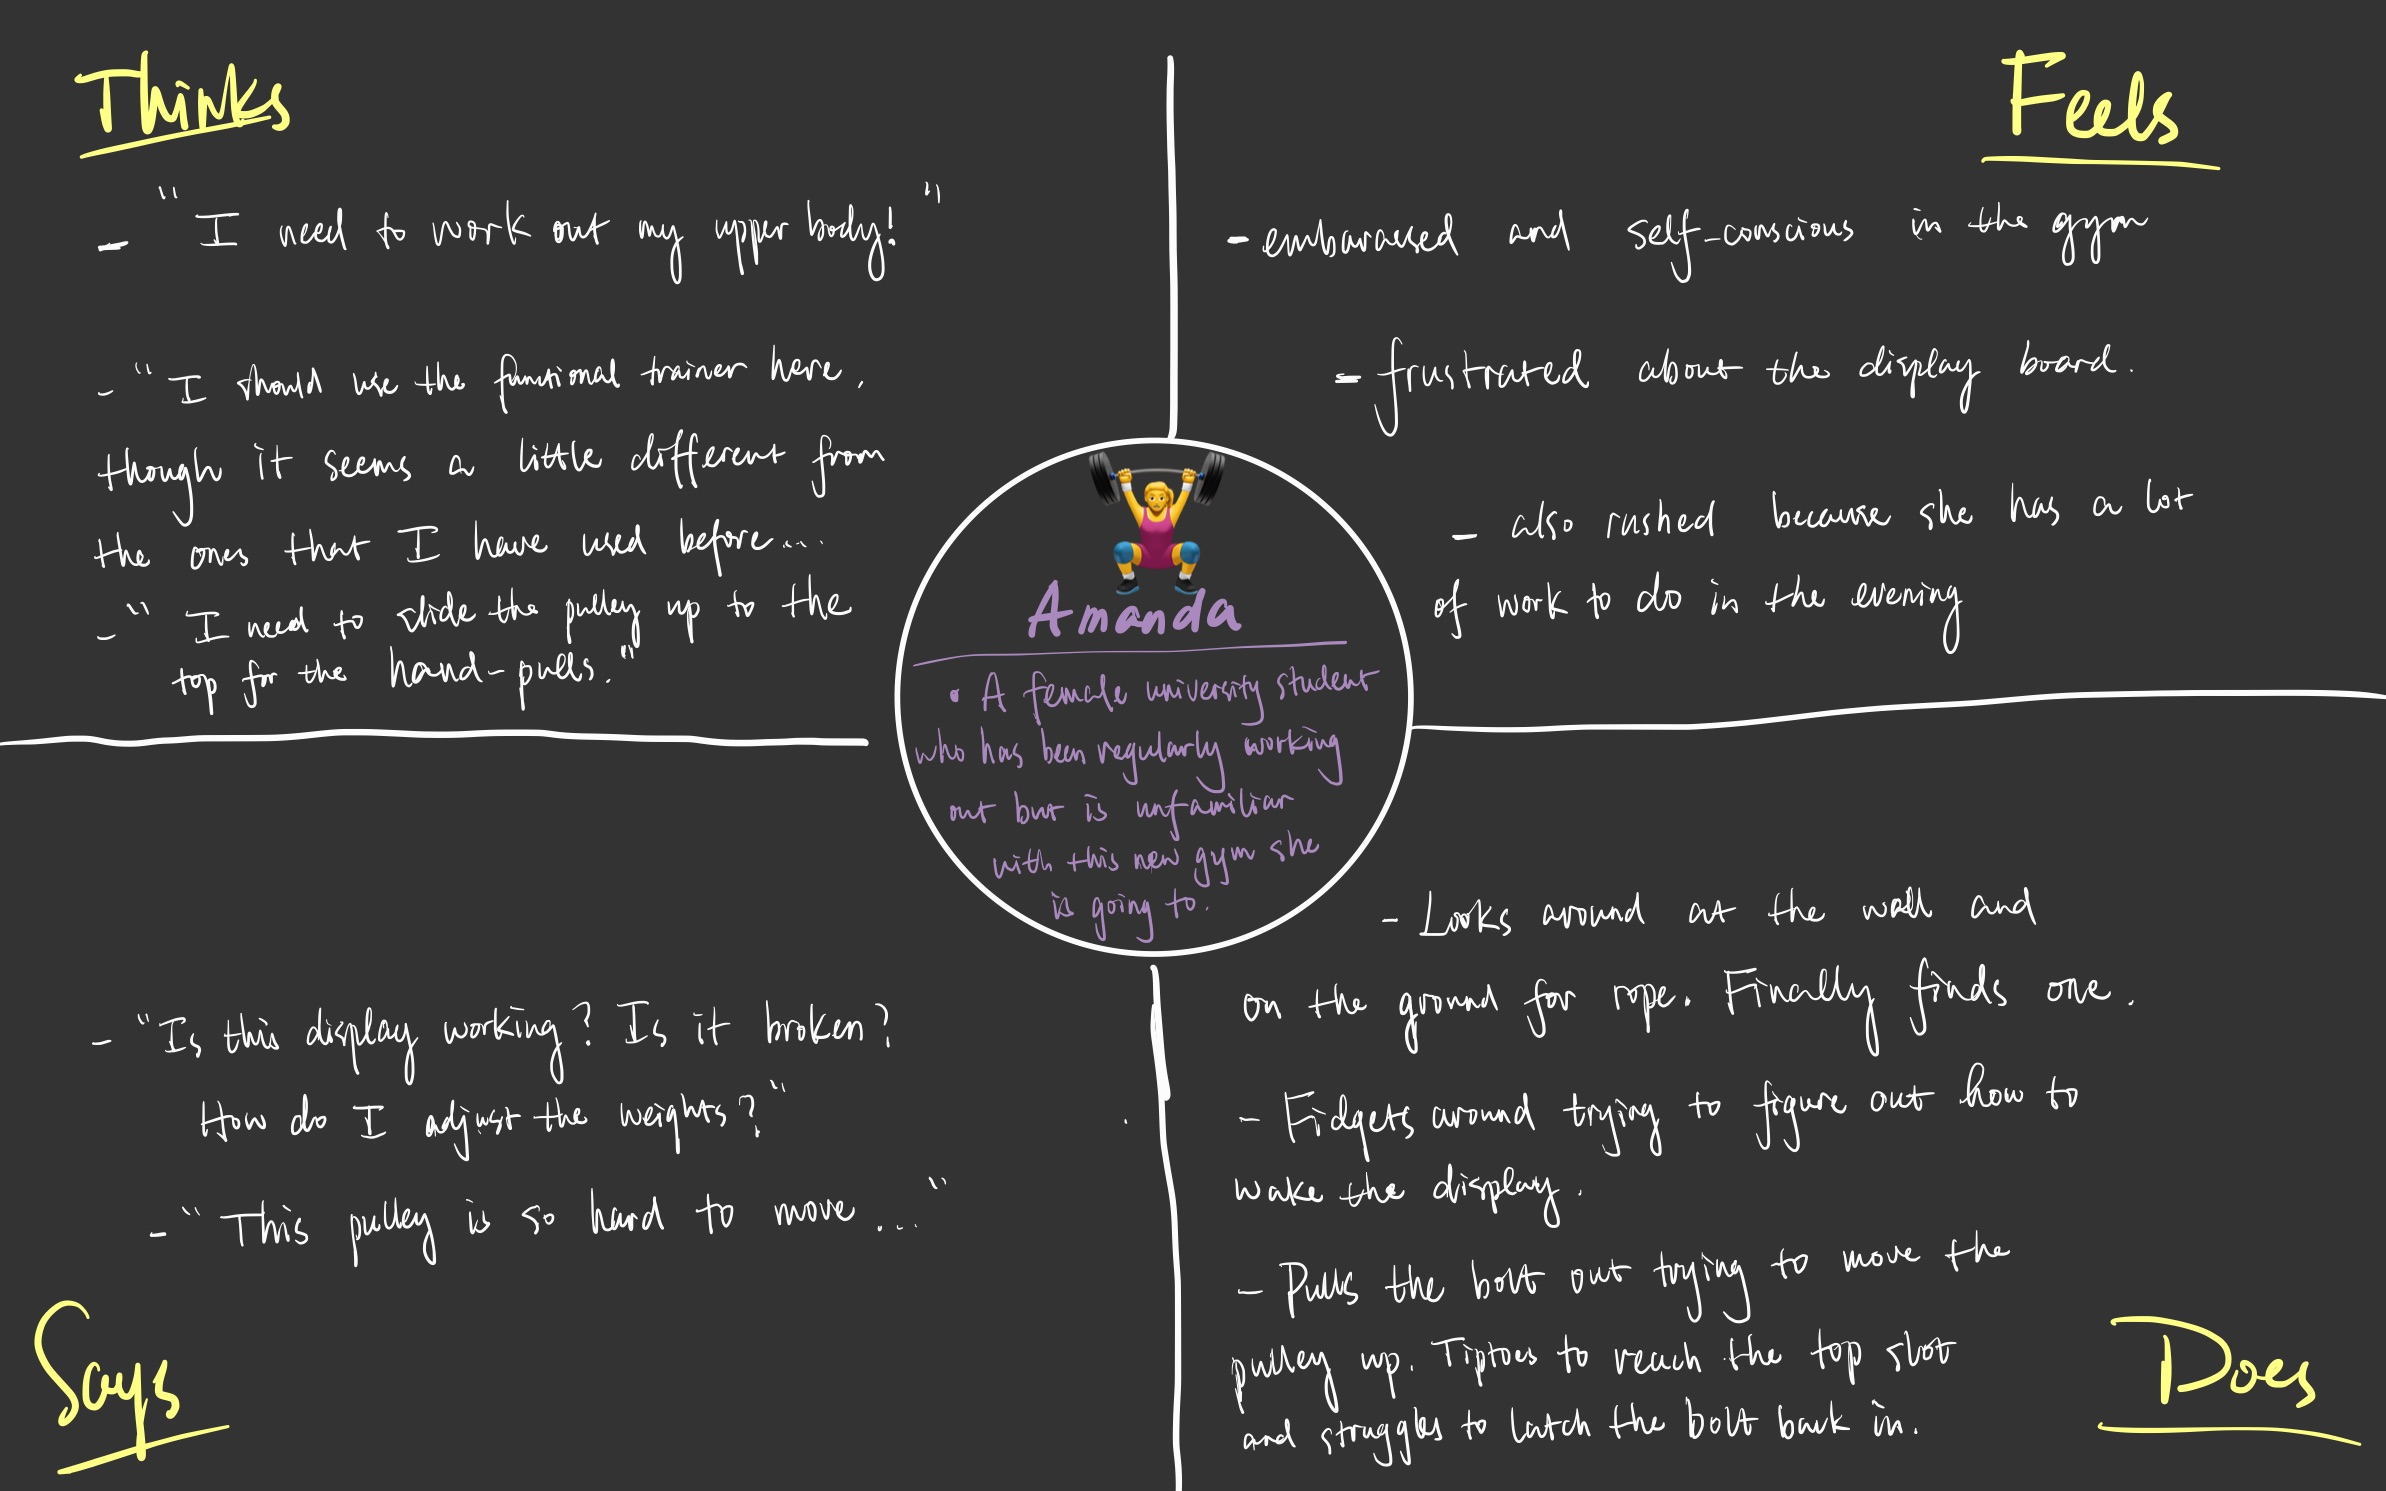 Thinks
- "I need to work out my upper body!"
- "I should use the functional trainer here,
though it seems a little different from
the ones that I have used before...
- " I need to slide the pulley up to the
top for the hand-pulls."
Feels
- embarassed and self-conscious in the gym
- frustrated about the display board.
- also rushed because she has a lot
of work to do in the evening
Amanda
• A female university student
who has been regularly working
out but is unfamiliar
with this new gym she
is going to.
- "Is this display working? Is it broken?
How do I adjust the weights?"
- "This pulley is so hard to move..."
Says
- Looks around at the wall and
on the ground for rope. Finally finds one.
- Fidgets around trying to figure out how to
wake the display.
- Pulls the bolt out trying to move the
pulley up. Tiptoes to reach the top slot
and struggles to latch the bolt back in.
Does